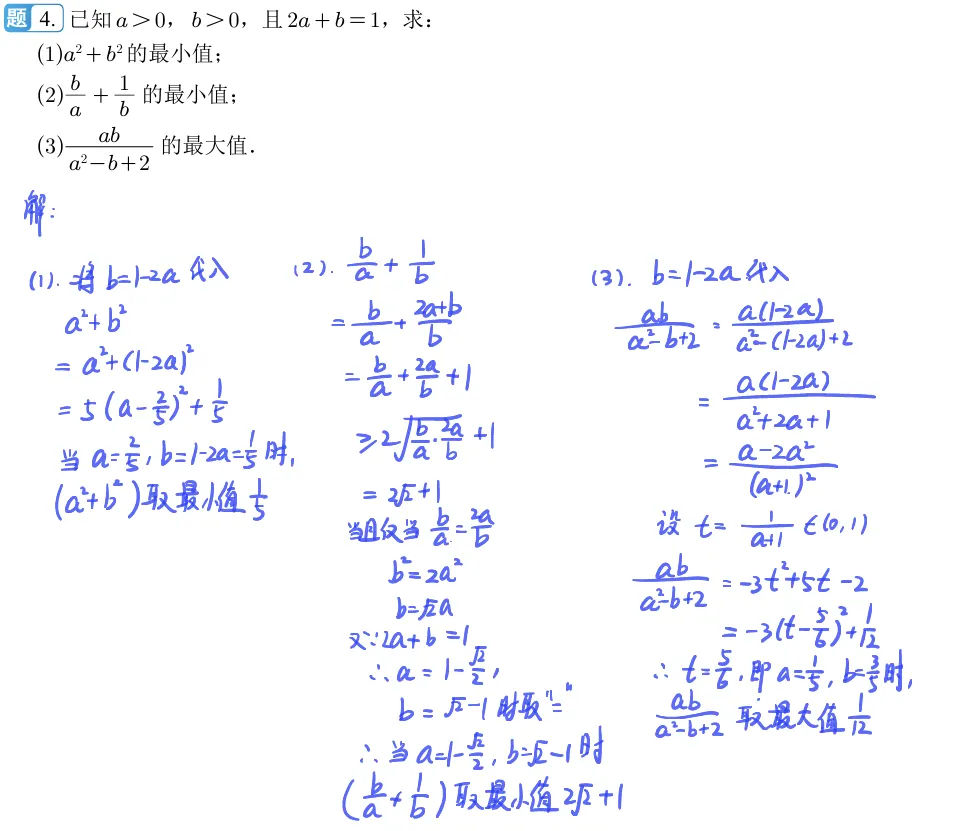 题 4. 已知 a>0, b>0, 且 2a+b=1, 求:
(1)a²+b²的最小值;
(2)b/a + 1/b 的最小值;
(3)ab/(a²-b+2) 的最大值.
解:
(1). 将 b=1-2a 代入
a²+b²
= a²+(1-2a)²
= 5(a-2/5)²+1/5
当 a=2/5, b=1-2a=1/5 时,
(a²+b²)取最小值 1/5
(2). b/a + 1/b
= b/a + (2a+b)/b
= b/a + 2a/b + 1
≥2√(b/a·2a/b) +1
= 2√2+1
当且仅当 b/a=2a/b
b²=2a²
b=√2a
又∵2a+b=1
∴a=1-√2/2,
b=√2-1 时取"="
∴当 a=1-√2/2, b=√2-1 时
(b/a+1/b) 取最小值 2√2+1
(3). b=1-2a 代入
ab/(a²-b+2) = a(1-2a)/(a²-(1-2a)+2)
= a(1-2a)/(a²+2a+1)
= (a-2a²)/(a+1)²
设 t=1/(a+1) ∈(0,1)
ab/(a²-b+2) = -3t²+5t-2
= -3(t-5/6)²+1/12
∴ t=5/6, 即 a=1/5, b=3/5时,
ab/(a²-b+2) 取最大值 1/12